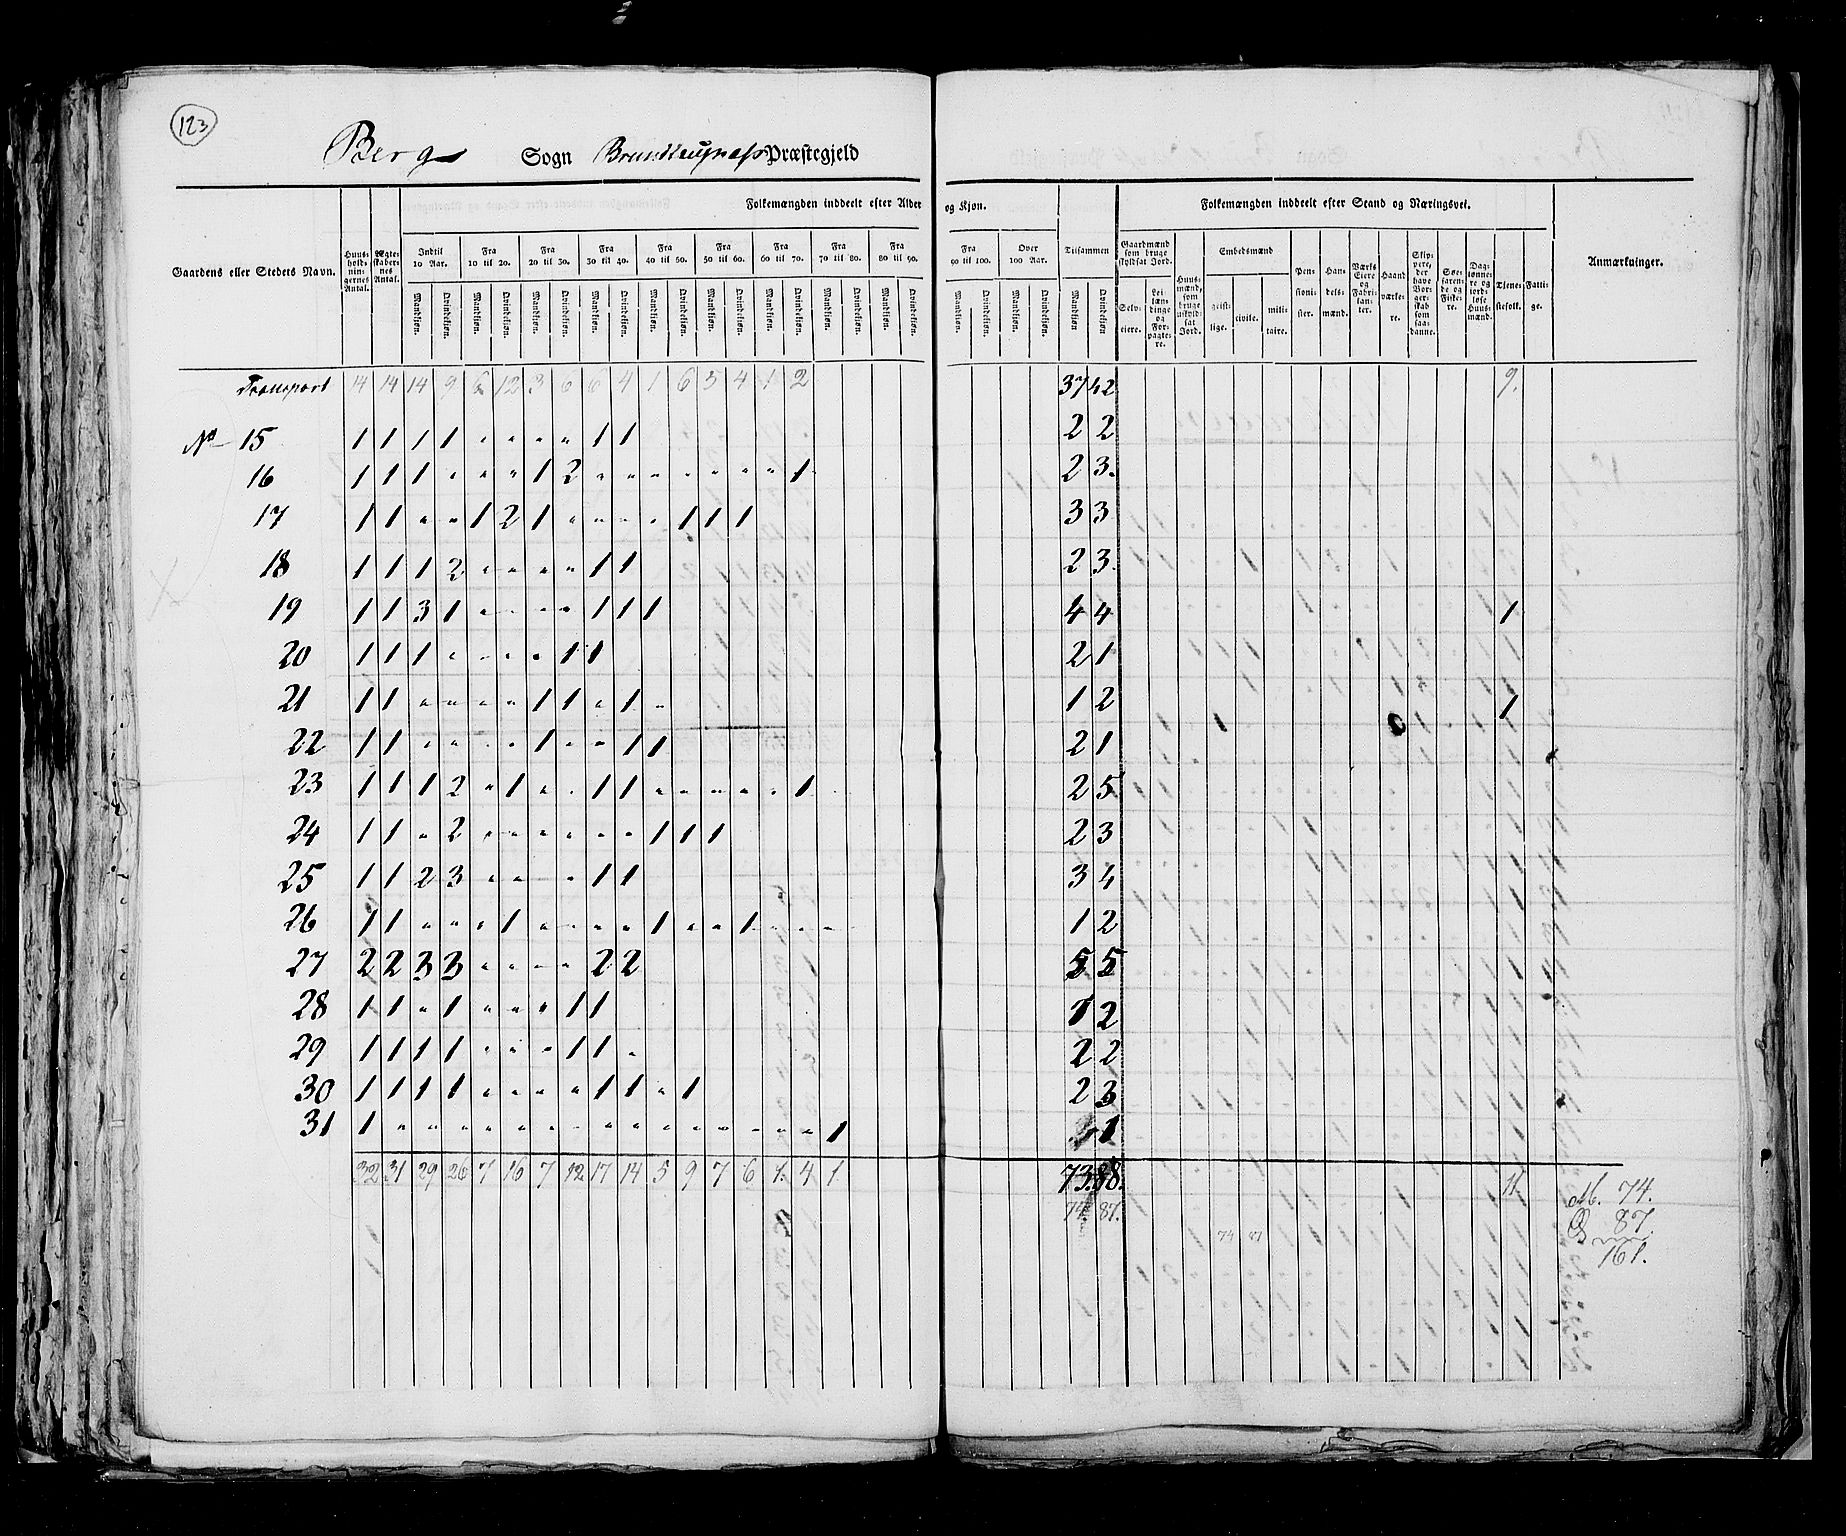 123
Berg Sogn Brunlaugnæss Præstegjeld
Folkemængden inddeelt efter Alder og Kjøn. Tilsammen Folkemængden inddeelt efter Stand og Næringsvei.
Gaardens eller Stedets Navn. Huus-hold-nin-gernes Antal. Ægte-skaber-nes Antal. Indtil 10 Aar. Fra 10 til 20. Fra 20 til 30. Fra 30 til 40. Fra 40 til 50. Fra 50 til 60. Fra 60 til 70. Fra 70 til 80. Fra 80 til 90. Fra 90 til 100. Over 100 Aar. Gaardmænd som bruge skyldsat Jord. Huus-mænd, som bruge uskyld-sat Jord. Embedsmænd Pen-sioni-ster. Han-dels-mænd. Værks Eiere og Fabri-kan-ter. Haand værke-re. Skip-pere, der have Bor-ger-skab som saa-danne. Søe-faren-de og Fiske-re. Dag-lønne-re og jord-løse Huus-mænd. Tjene-stefolk. Fatti-ge. Anmærkninger.
Mandkjøn. Qvindekjøn. Mandkjøn. Qvindekjøn. Mandkjøn. Qvindekjøn. Mandkjøn. Qvindekjøn. Mandkjøn. Qvindekjøn. Mandkjøn. Qvindekjøn. Mandkjøn. Qvindekjøn. Mandkjøn. Qvindekjøn. Mandkjøn. Qvindekjøn. Mandkjøn. Qvindekjøn. Mandkjøn. Qvindekjøn. Mandkjøn Qvindekjøn Selv-eiere. Lei-læn-dinge og For-pagte-re. geist-lige. civile. mili-taire.
Transport 14 14 14 9 6 12 3 6 6 4 1 6 5 4 1 2 37 42 9.
No 15 1 1 1 1 " " " " 1 1 2 2
16 1 1 1 " " " 1 2 " " " " " " " 1 2 3.
17 1 1 " " 1 2 1 " " " " 1 1 1 3 3
18 1 1 1 2 " " " " 1 1 2 3
19 1 1 3 1 " " " " 1 1 1 4 4 1
20 1 1 1 " " " " 1 1 2 1
21 1 1 " " " " 1 1 " 1 " 1 2 1
22 1 1 " " " " 1 " " 1 1 2 1
23 1 1 1 2 " 1 " " 1 1 " " " " " 1 2 5
24 1 1 " 2 " " " " " " 1 1 1 2 3
25 1 1 2 3 " " " " 1 1 3 4
26 1 1 " " " 1 " " " " 1 " " 1 " " " 1 2
27 2 2 3 3 " " " " 2 2 5 5
28 1 1 " 1 " " " 1 1 1 2
29 1 1 1 1 " " " 1 1 " 2 2
30 1 1 1 1 " " " " 1 1 " 1 2 3
31 1 " " " " " " " " " " " " " " " 1 " 1
32 31 29 26 7 16 7 12 17 14 5 9 7 6 1. 4 1 73. 88. 11
74. 87.
74 87
M. 74.
Q 87.
161.